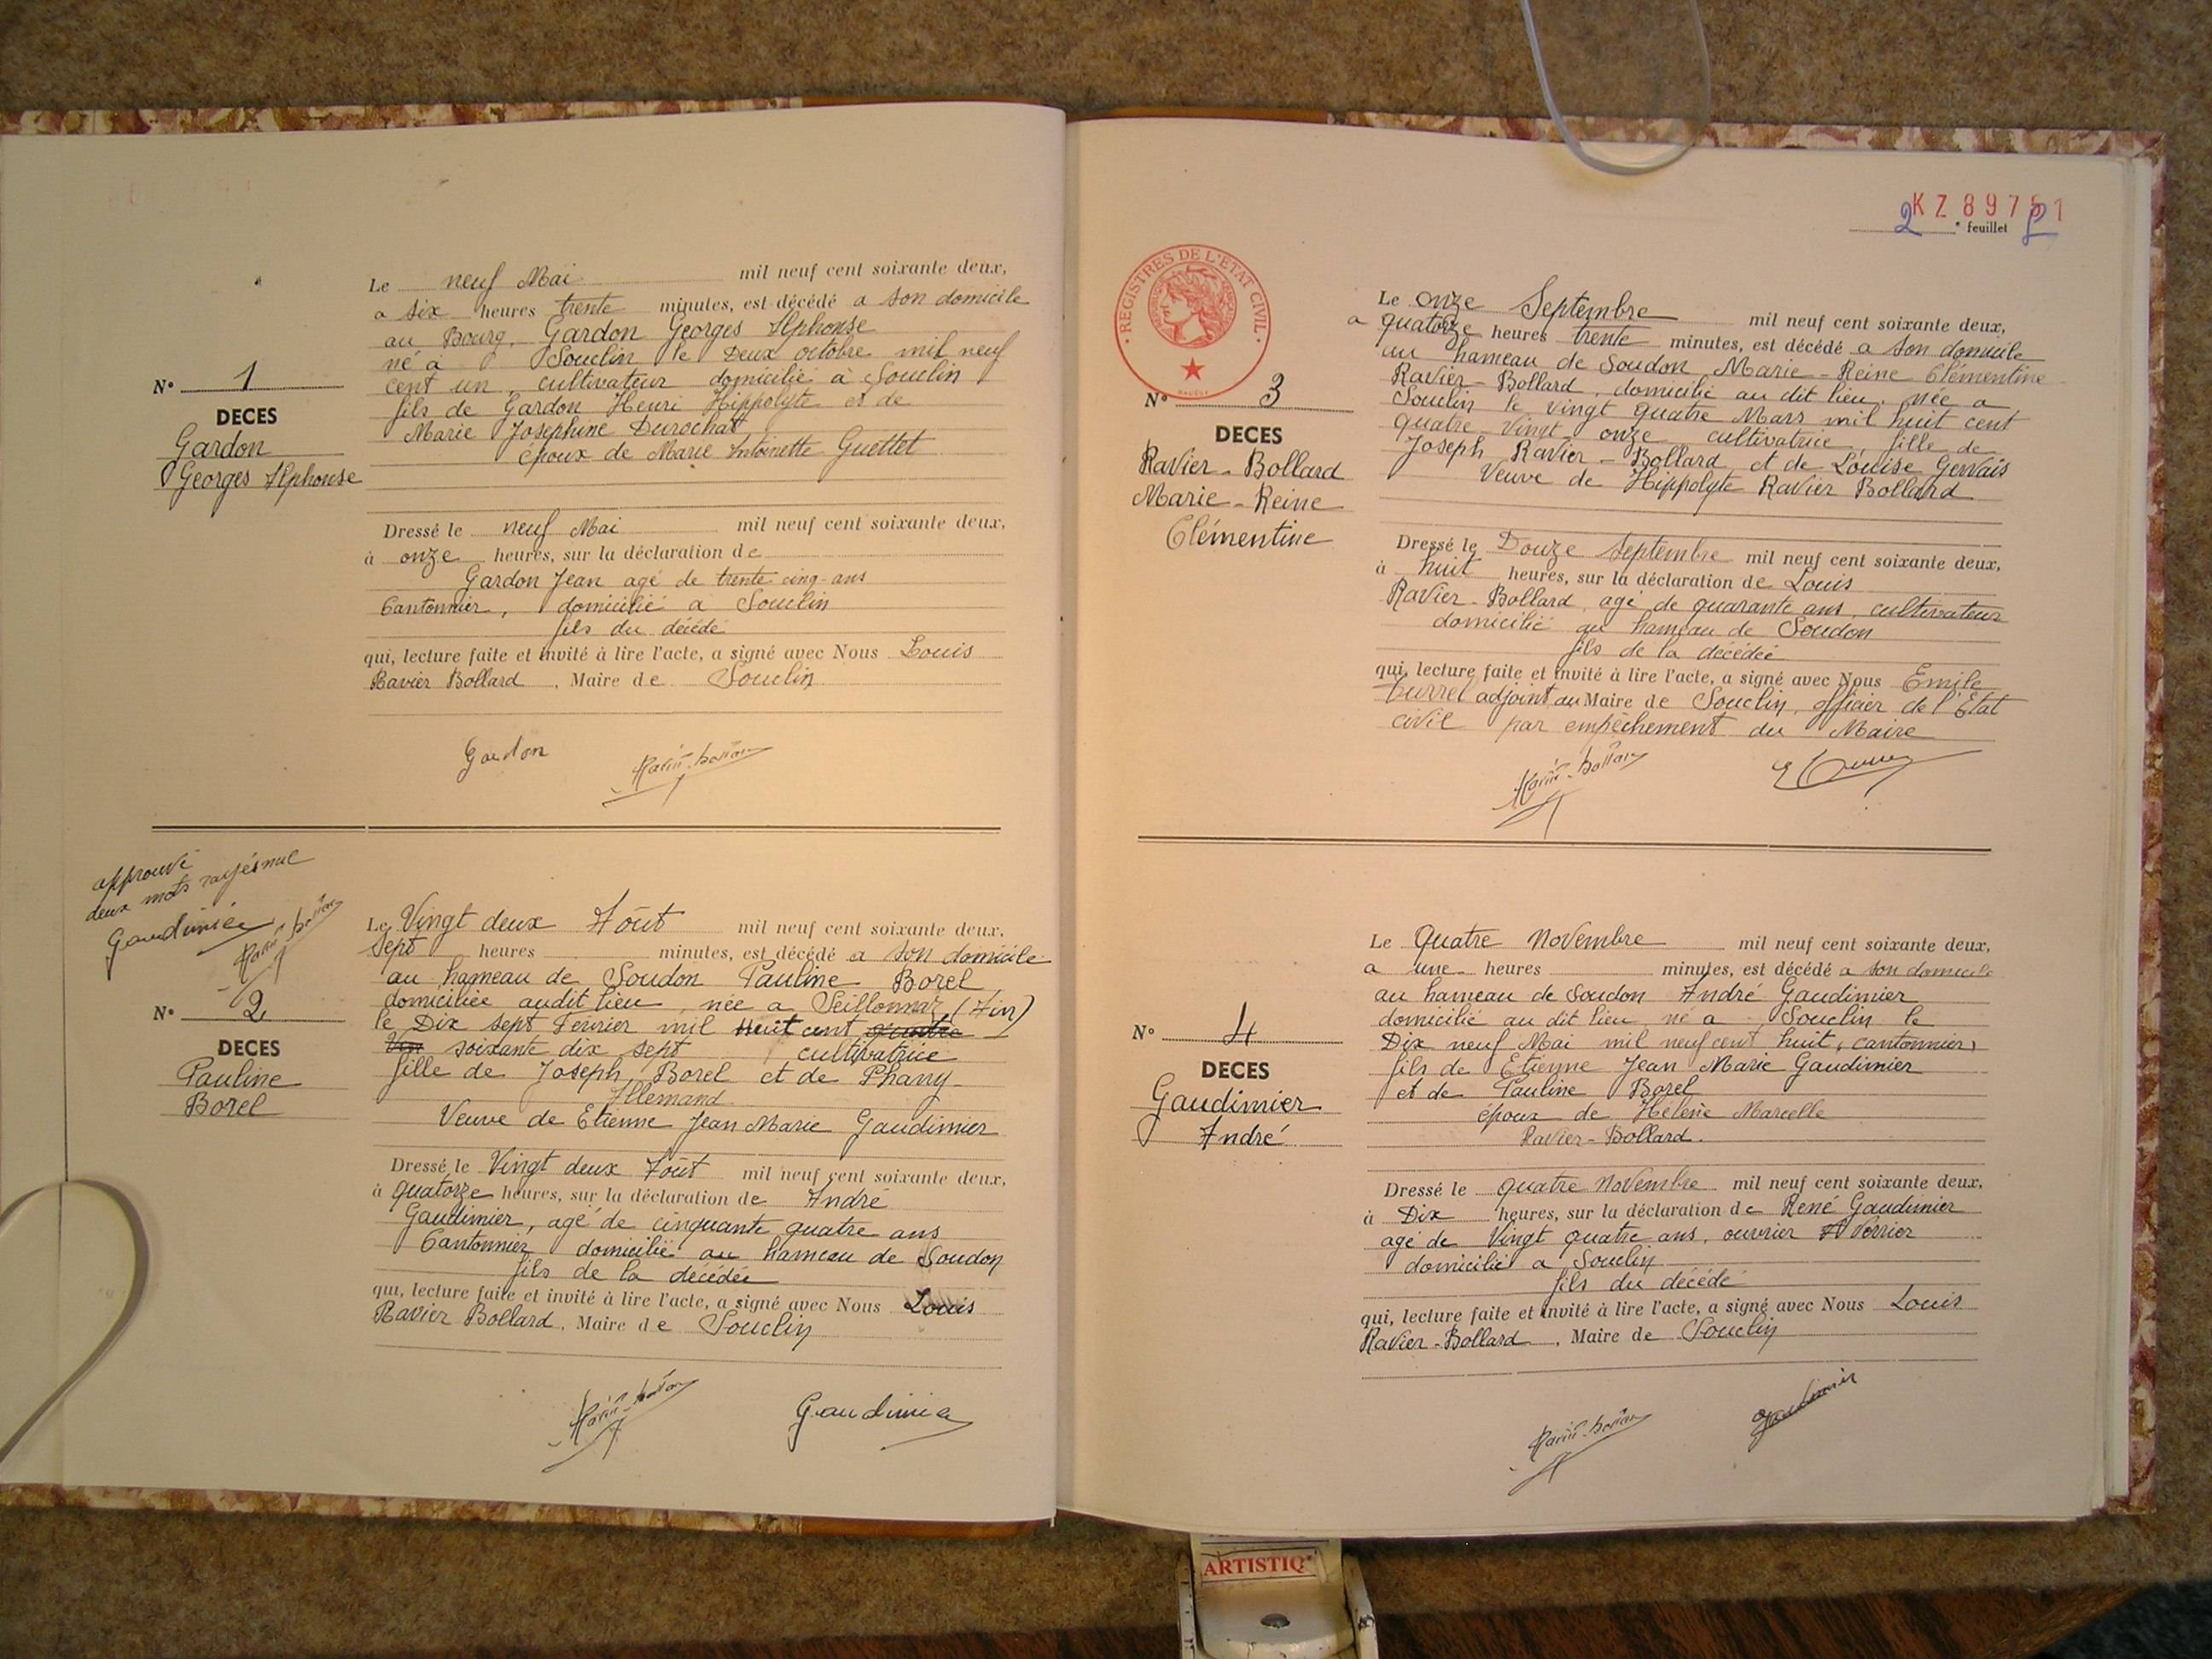 Le neuf Mai mil neuf cent soixante deux,
a six heures trente minutes, est décédé a son domicile
au Bourg, Gardon Georges Alphonse
né à Souclin le Deux octobre mil neuf
cent un, cultivateur domicilié à Souclin
fils de Gardon Henri Hippolyte et de
Marie Josephine Durochat
époux de Marie Antoinette Guettet
N° 1
DECES
Gardon
Georges Alphonse
Dressé le neuf Mai mil neuf cent soixante deux,
à onze heures, sur la déclaration de
Gardon Jean agé de trente cinq ans
Cantonnier, domicilié a Souclin
fils du décédé
qui, lecture faite et invité à lire l'acte, a signé avec Nous Louis
Ravier Bollard, Maire de Souclin
Gardon
Ravier-Bollard
approuvé
deux mots rayés nul
Gaudimier
Ravier-Bollard
Le Vingt deux Août mil neuf cent soixante deux,
Sept heures minutes, est décédé a son domicile
au hameau de Soudon Pauline Borel
domiciliée audit lieu, née a Seillonnaz (Ain)
le Dix sept Février mil Huit cent quatre
Vin soixante dix sept cultivatrice
fille de Joseph Borel et de Phany
Allemand
Veuve de Etienne Jean Marie Gaudimier
N° 2
DECES
Pauline
Borel
Dressé le Vingt deux Août mil neuf cent soixante deux,
à quatorze heures, sur la déclaration de André
Gaudimier, agé de cinquante quatre ans
Cantonnier domicilié au hameau de Soudon
fils de la décédée
qui, lecture faite et invité à lire l'acte, a signé avec Nous Louis
Ravier Bollard, Maire de Souclin
Ravier-Bollard
Gaudimier
KZ89751
2e feuillet
REGISTRES DE L'ETAT CIVIL
Le onze Septembre mil neuf cent soixante deux,
a quatorze heures trente minutes, est décédé a son domicile
au hameau de Soudon Marie-Reine Clémentine
Ravier-Bollard, domicilié au dit lieu, née a
Souclin le vingt quatre Mars mil huit cent
quatre vingt onze cultivatrice, fille de
Joseph Ravier-Bollard et de Louise Gervais
Veuve de Hippolyte Ravier Bollard
N° 3
DECES
Ravier-Bollard
Marie-Reine
Clémentine
Dressé le Douze Septembre mil neuf cent soixante deux,
à huit heures, sur la déclaration de Louis
Ravier-Bollard, agé de quarante ans, cultivateur
domicilié au hameau de Soudon
fils de la décédée
qui, lecture faite et invité à lire l'acte, a signé avec Nous Emile
adjoint au Maire de Souclin, officier de l'Etat
civil par empêchement du Maire
Ravier-Bollard
Le Quatre Novembre mil neuf cent soixante deux,
a une heures minutes, est décédé a son domicile
au hameau de Soudon André Gaudimier
domicilié au dit lieu né a Souclin le
Dix neuf Mai mil neuf cent huit, cantonnier,
fils de Etienne Jean Marie Gaudimier
et de Pauline Borel
époux de Hélène Marcelle
Ravier-Bollard.
N° 4
DECES
Gaudimier
André
Dressé le quatre Novembre mil neuf cent soixante deux,
à Dix heures, sur la déclaration de René Gaudimier
agé de Vingt quatre ans, ouvrier Verrier
domicilié a Souclin
fils du décédé
qui, lecture faite et invité à lire l'acte, a signé avec Nous Louis
Ravier-Bollard, Maire de Souclin
Ravier-Bollard
Gaudimier
ARTISTIQ